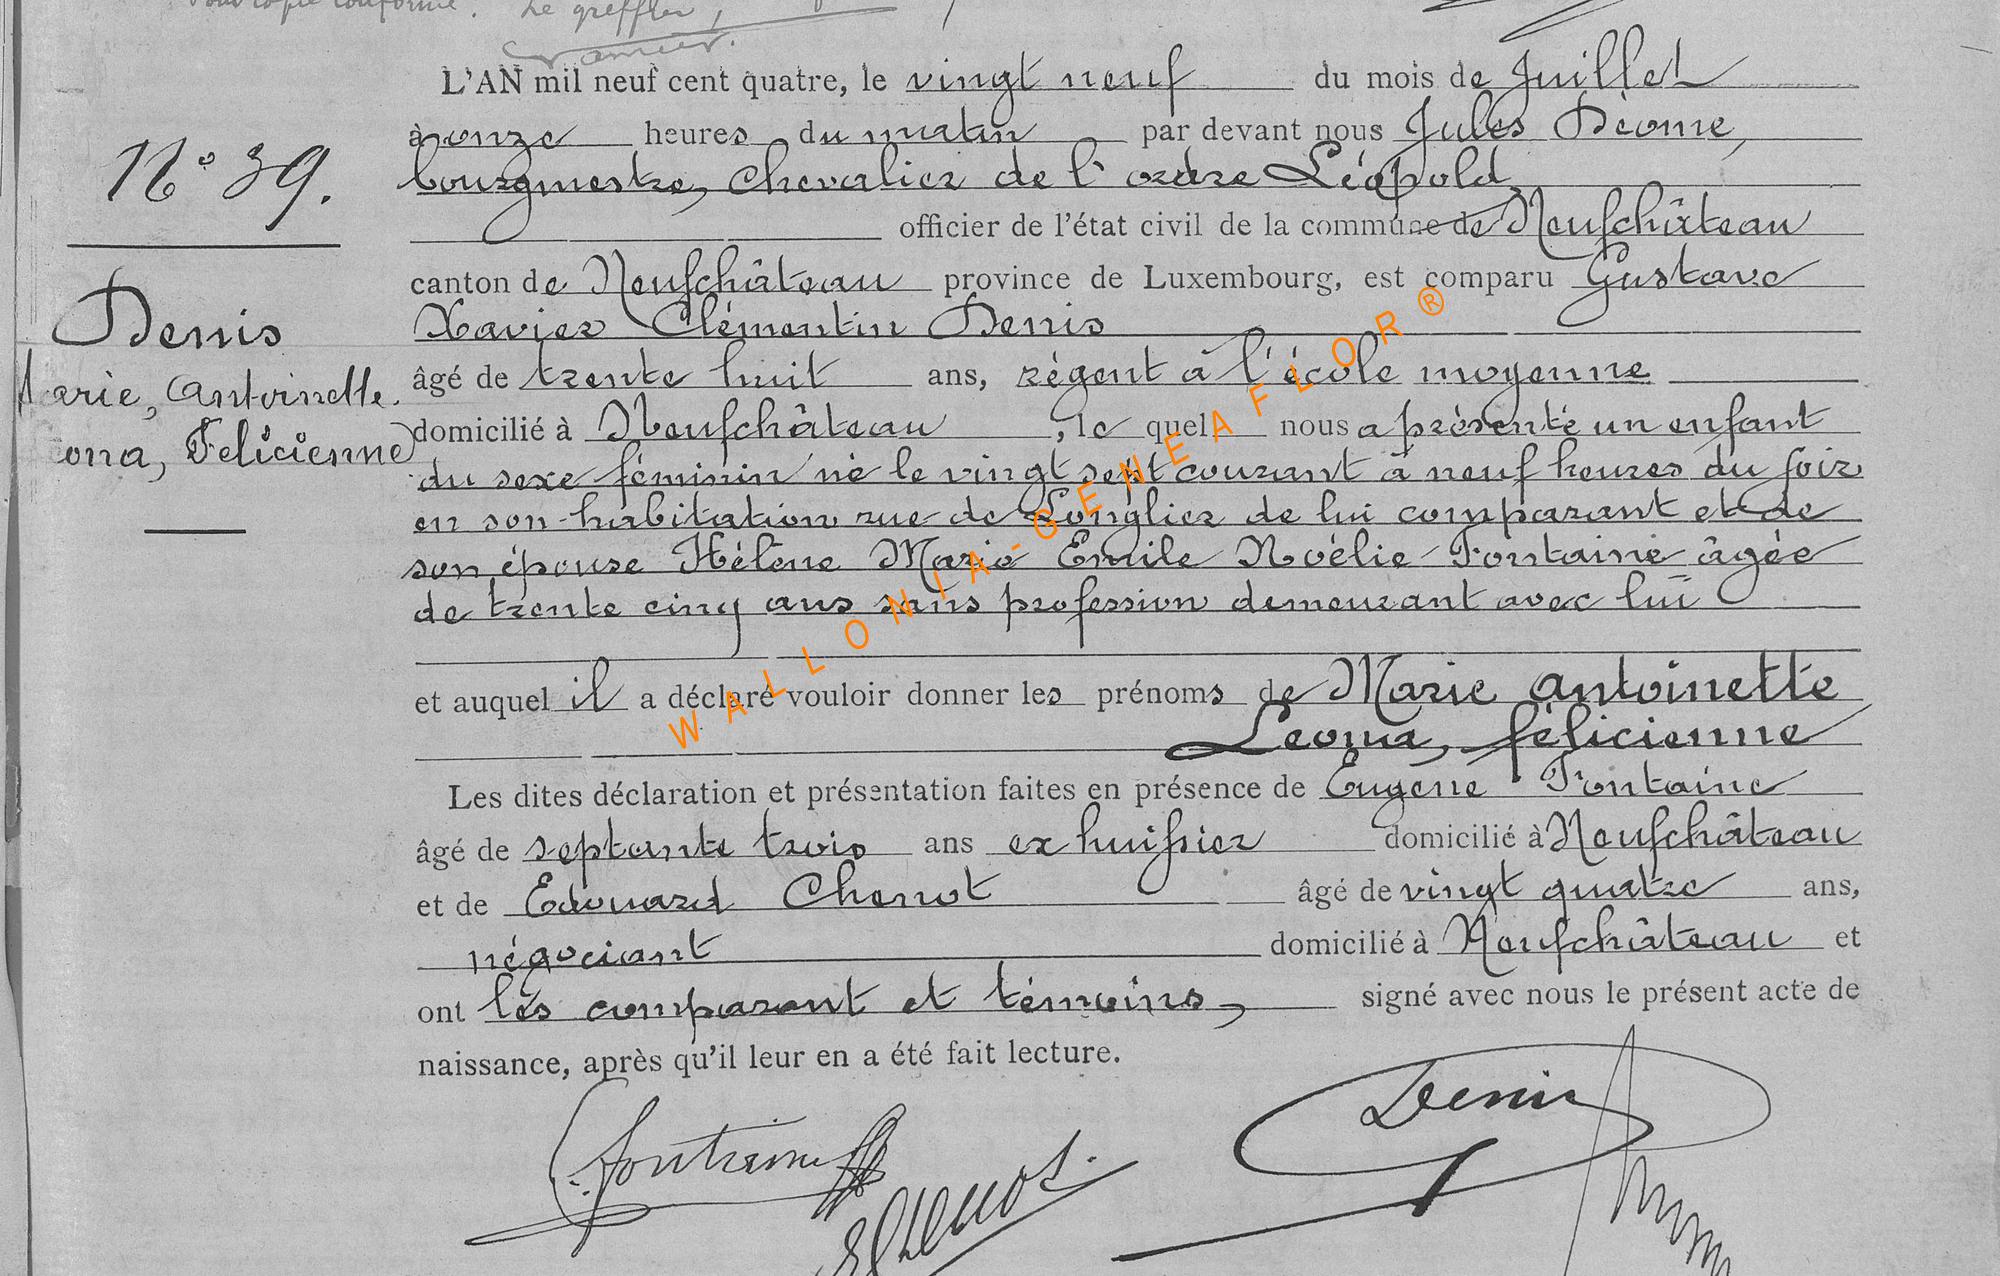 Pour copie conforme. Le greffier,
L'AN mil neuf cent quatre, le vingt neuf du mois de Juillet
à onze heures du matin par devant nous Jules Déome,
bourgmestre, Chevalier de l'ordre Léopold
officier de l'état civil de la commune de Neufchâteau
canton de Neufchâteau province de Luxembourg, est comparu Gustave
Xavier Clémentin Denis
âgé de trente huit ans, régent à l'école moyenne
domicilié à Neufchâteau, le quel nous a présenté un enfant
du sexe féminin né le vingt sept courant à neuf heures du soir
en son habitation rue de Longlier de lui comparant et de
son épouse Hélène Marie Emile Noélie Fontaine âgée
de trente cinq ans sans profession demeurant avec lui
et auquel il a déclaré vouloir donner les prénoms de Marie Antoinette
Leona, félicienne
Les dites déclaration et présentation faites en présence de Eugene Fontaine
âgé de septante trois ans ex huissier domicilié à Neufchâteau
et de Edouard Chenot âgé de vingt quatre ans,
négociant domicilié à Neufchâteau et
ont les comparant et témoins, signé avec nous le présent acte de
naissance, après qu'il leur en a été fait lecture.
N° 39.
Denis
arie, Antoinette.
ona, Felicienne
Fontaine
E Chenot.
Denis
WALLONIA-GENEAFLOR®